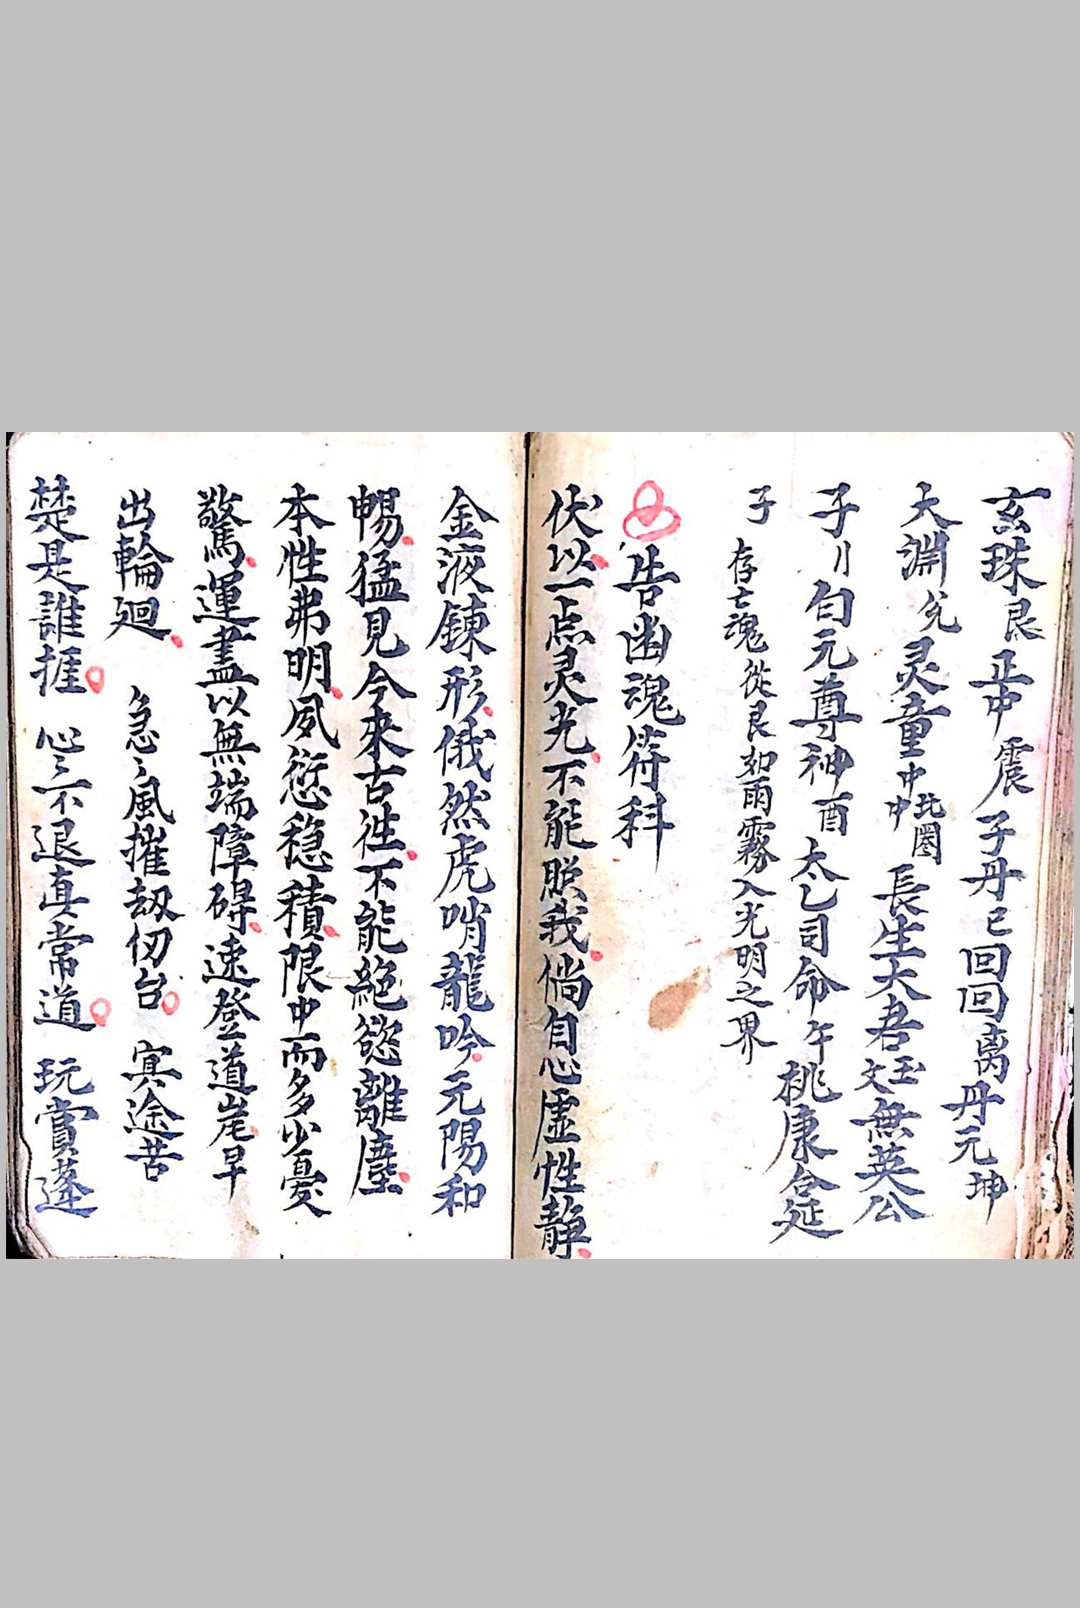 玄珠艮正中震子丹巳回回离丹元坤
大淵兌灵童中中北圈長生大君文玉無英公
子刂句元尊神酉太乙司命午桃康合延
子存亡魂從艮如雨霧入光明之界
告幽魂符科
伏以一点灵光不能照我倘自心虛性静
金液鍊形俄然虎哨龍吟元陽和
暢猛見今來古徃不能絶慾離塵
本性弗明夙愆稳積限中而多少憂
驚運盡以無端障碍速登道岸早
出輪廻急〻風摧刼仞台㝠途苦
楚是誰捱心〻不退真常道玩賞蓬